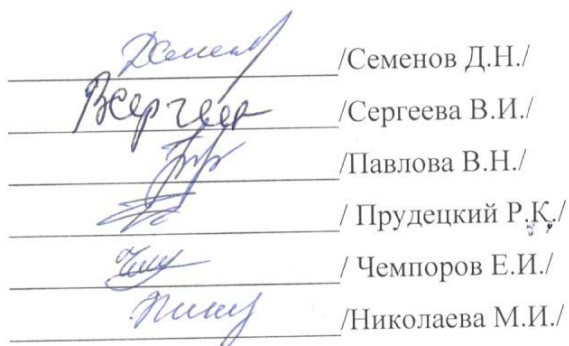 /Семенов Д.Н./
Всергеев /Сергеева В.И./
/Павлова В.Н./
/ Прудецкий Р.К./
/ Чемпоров Е.И./
/Николаева М.И./